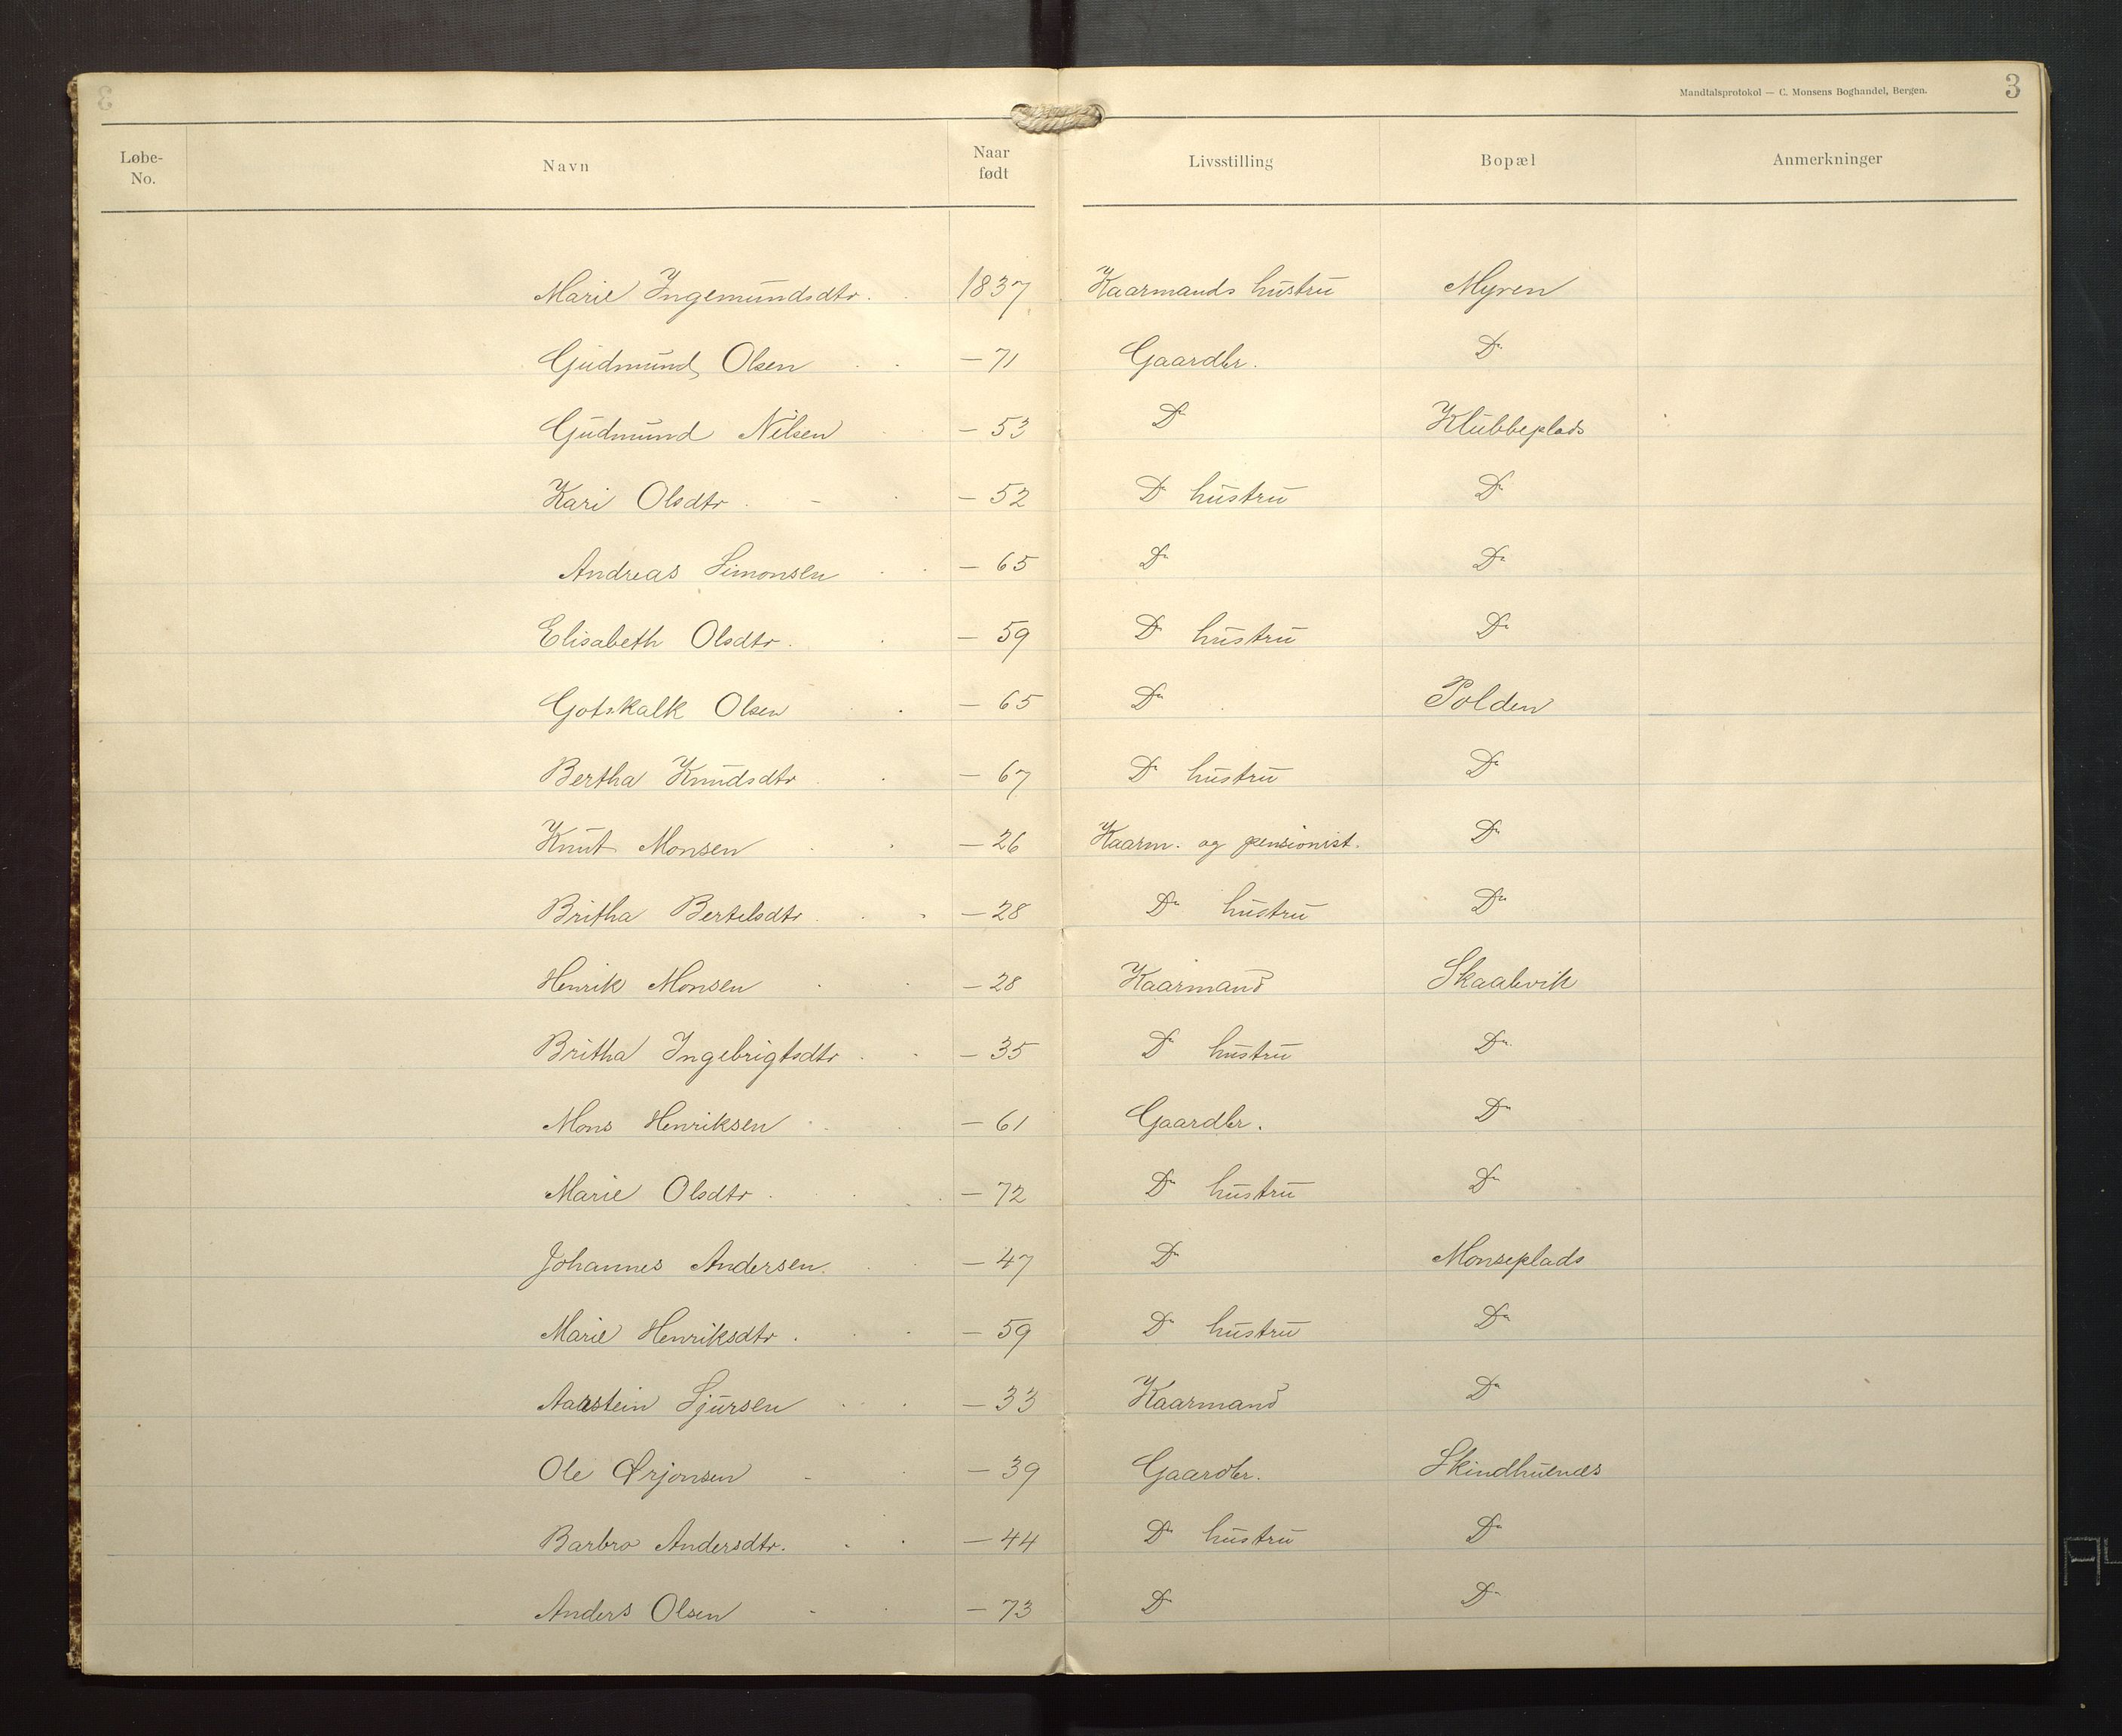 Mandtalsprotokol — C. Monsens Boghandel, Bergen. 3
Løbe-No. Navn Naar født Livsstilling Bopæl Anmerkninger
Marie Ingemundsdtr. 1837 Kaarmands hustru Myren
Gudmund Olsen — 71 Gaardbr. Do
Gudmund Nilsen — 53 Do Klubbeplads
Kari Olsdtr — 52 Do hustru Do
Andreas Simonsen — 65 Do Do
Elisabeth Olsdtr. — 59 Do hustru Do
Gotskalk Olsen — 65 Do Polden
Bertha Knudsdtr — 67 Do hustru Do
Knut Monsen — 26 Kaarm. og pensionist. Do
Britha Bertelsdtr — 28 Do hustru Do
Henrik Monsen — 28 Kaarmand Skaalevik
Britha Ingebrigtsdtr — 35 Do hustru Do
Mons Henriksen — 61 Gaardbr. Do
Marie Olsdtr — 72 Do hustru Do
Johannes Andersen — 47 Do Monseplads
Marie Henriksdtr. — 59 Do hustru Do
Aarstein Sjursen — 33 Kaarmand Do
Ole Ørjonsen — 39 Gaardbr. Skindhuenæs
Barbro Andersdtr. — 44 Do hustru Do
Anders Olsen — 73 Do Do